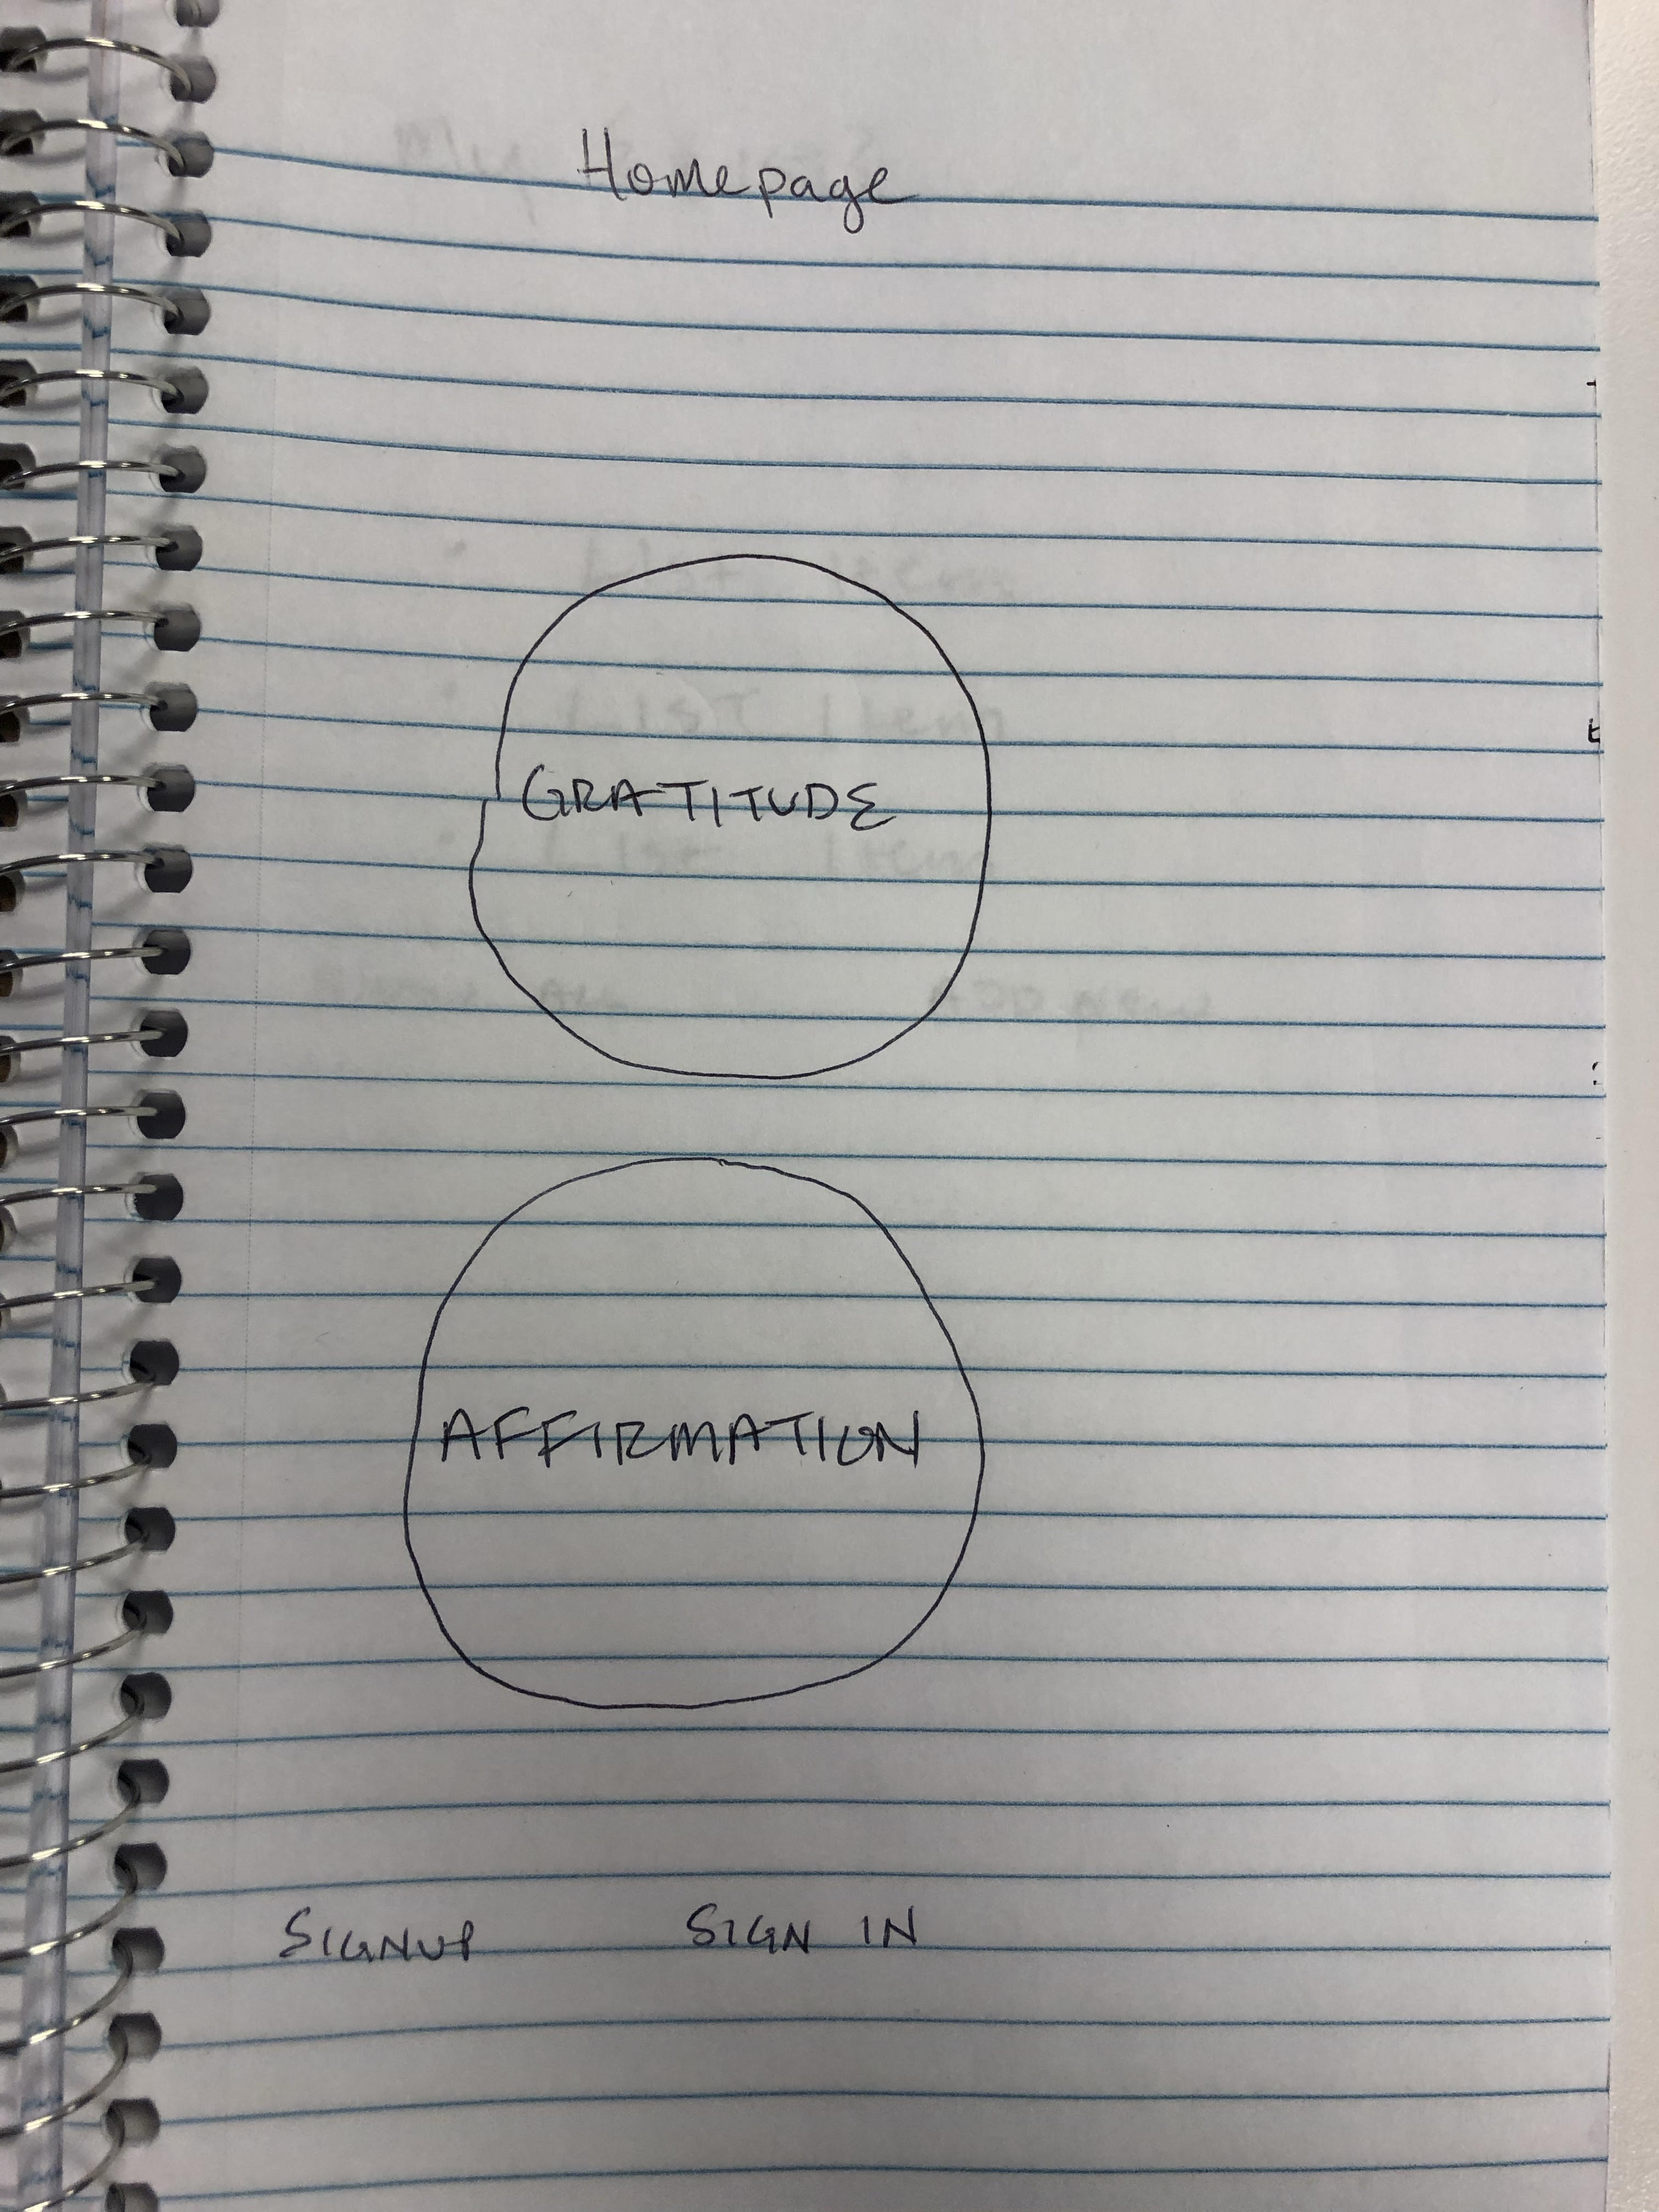 Homepage
GRATITUDE
AFFIRMATION
SIGNUP SIGN IN